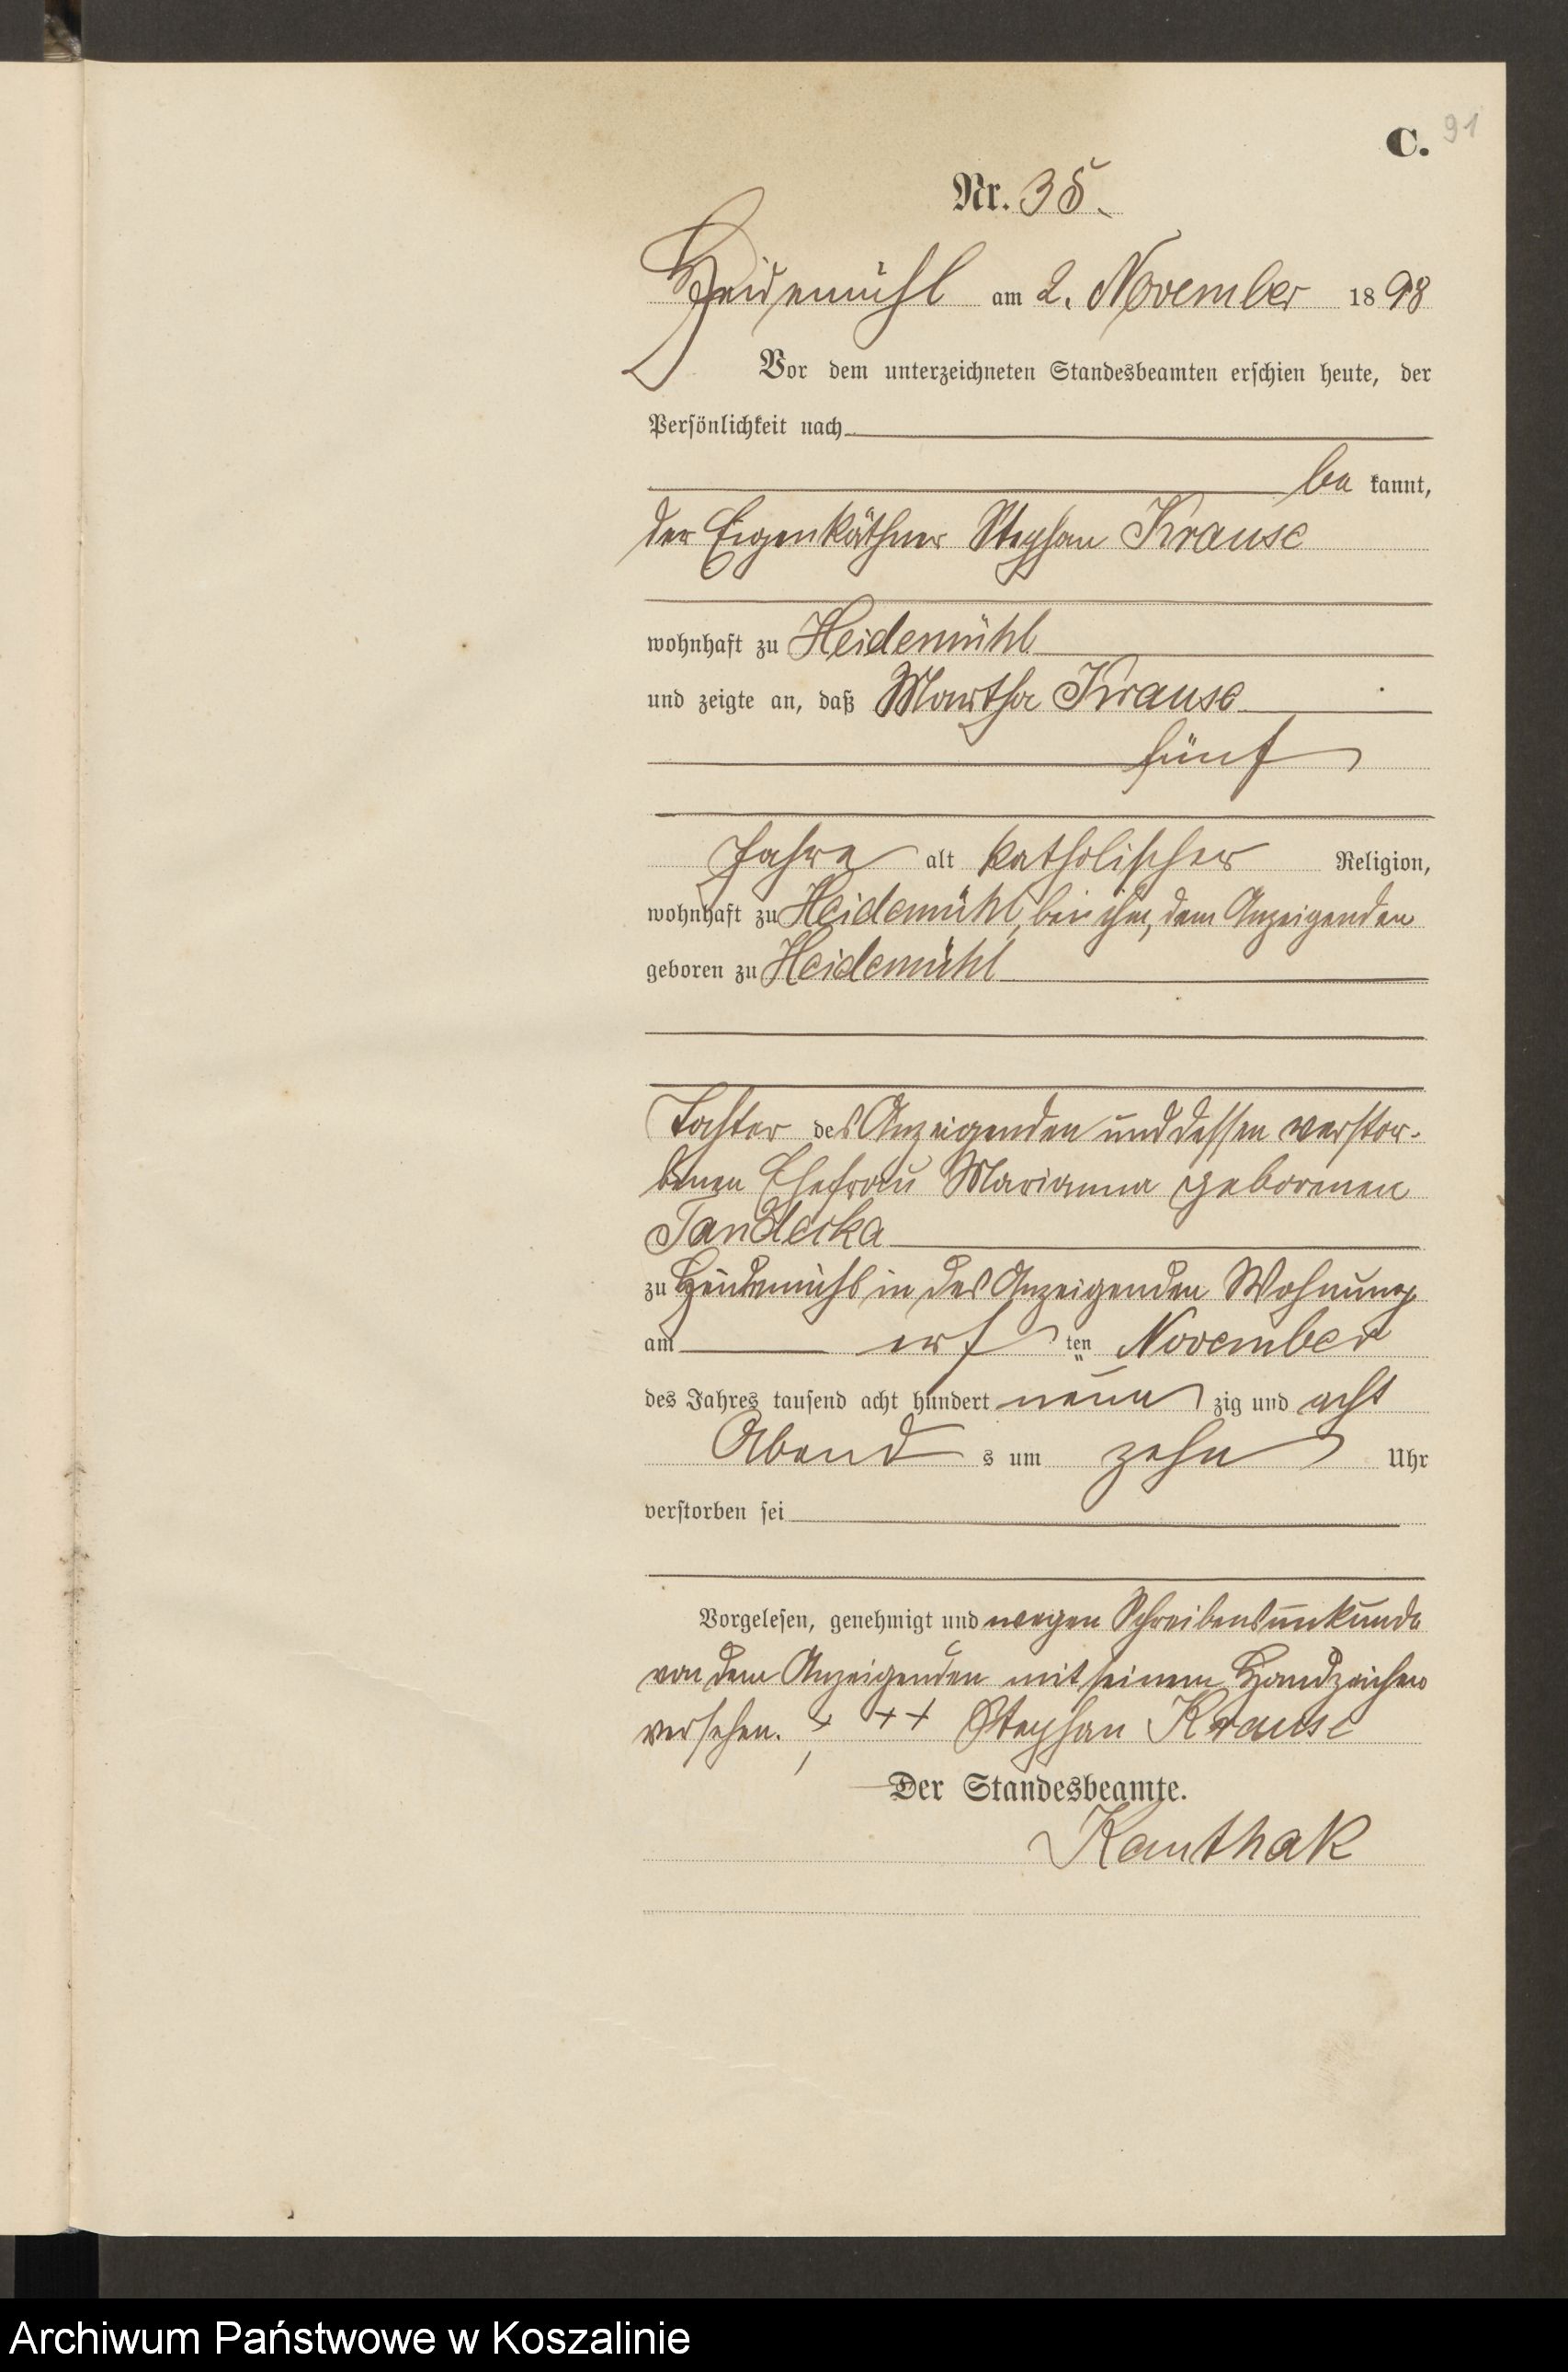 C. 91
Nr. 35.
Heidemühl am 2. November 1898
Vor dem unterzeichneten Standesbeamten erschien heute, der
Persönlichkeit nach
be kannt,
der Eigenkäthner Stephan Krause
wohnhaft zu Heidemühl
und zeigte an, daß Martha Krause
fünf
Jahre alt katholischer Religion,
wohnhaft zu Heidemühl, bei ihm, dem Anzeigenden
geboren zu Heidemühl
Tochter des Anzeigenden und dessen verstor-
benen Ehefrau Marianna geborenen
zu Heidemühl in des Anzeigenden Wohnung
am ers ten November
des Jahres tausend acht hundert neun zig und acht
Abend s um zehn Uhr
verstorben sei
Vorgelesen, genehmigt und wegen Schreibensunkunde
von dem Anzeigenden mit seinem Handzeichen
versehen. + + + Stephan Krause
Der Standesbeamte.
Kauthak
Archiwum Państwowe w Koszalinie